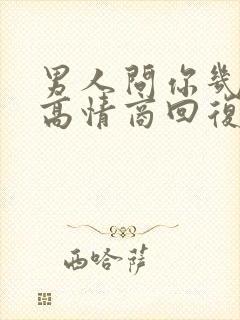 男人問你幾
高情商回復
西哈薩